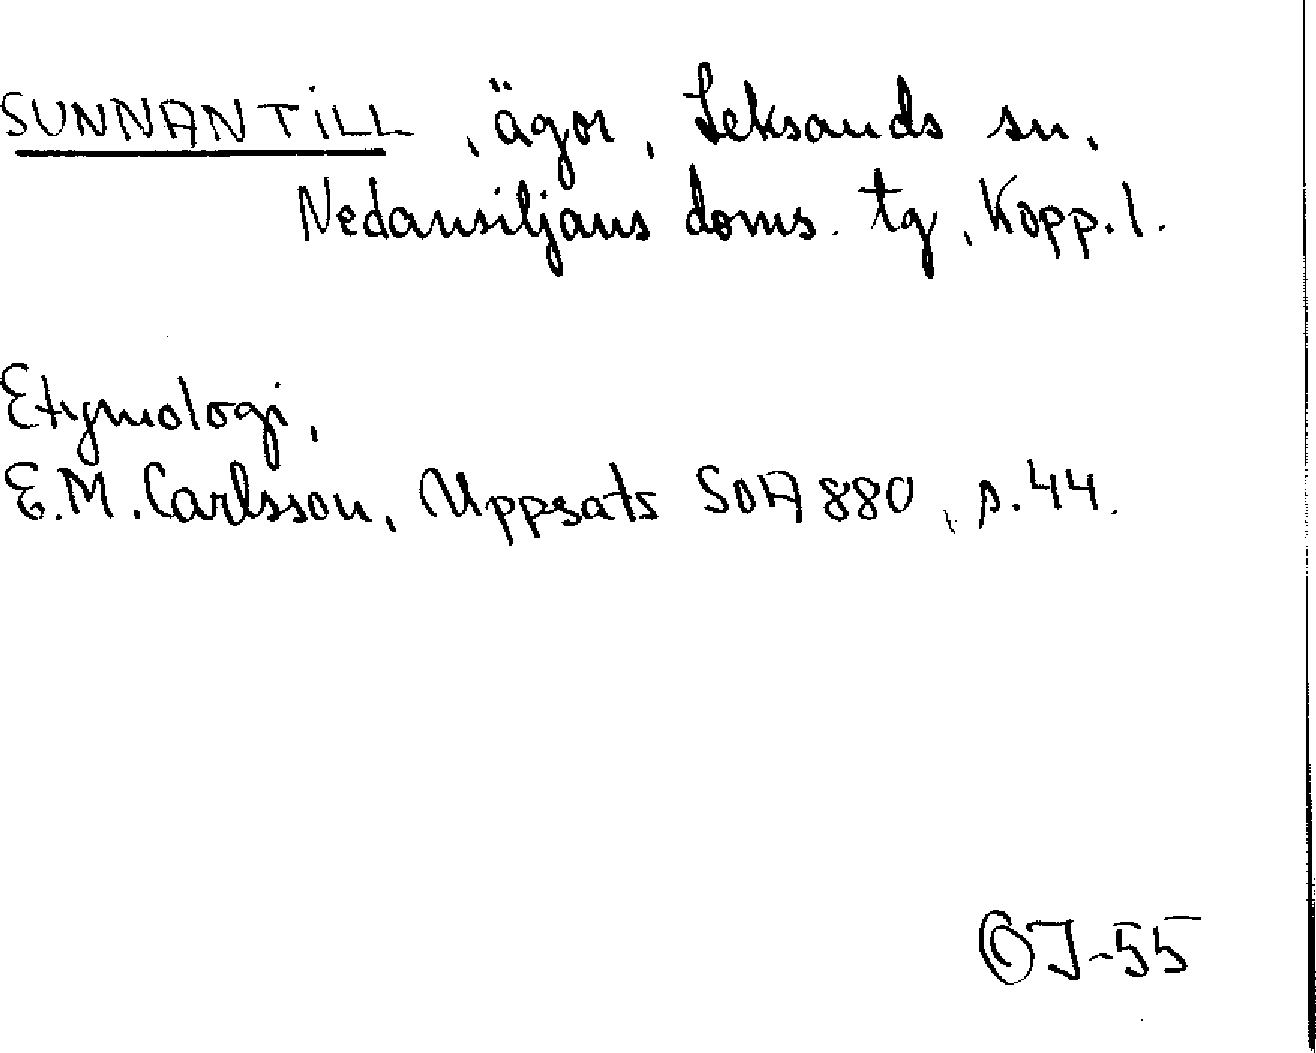 SUNNANTILL, ägor, Leksands sn,
Nedansiljans doms. tg, Kopp. l.
Etymologi,
E.M. Carlsson, Uppsats SOA 880, s. 44.
OJ-55